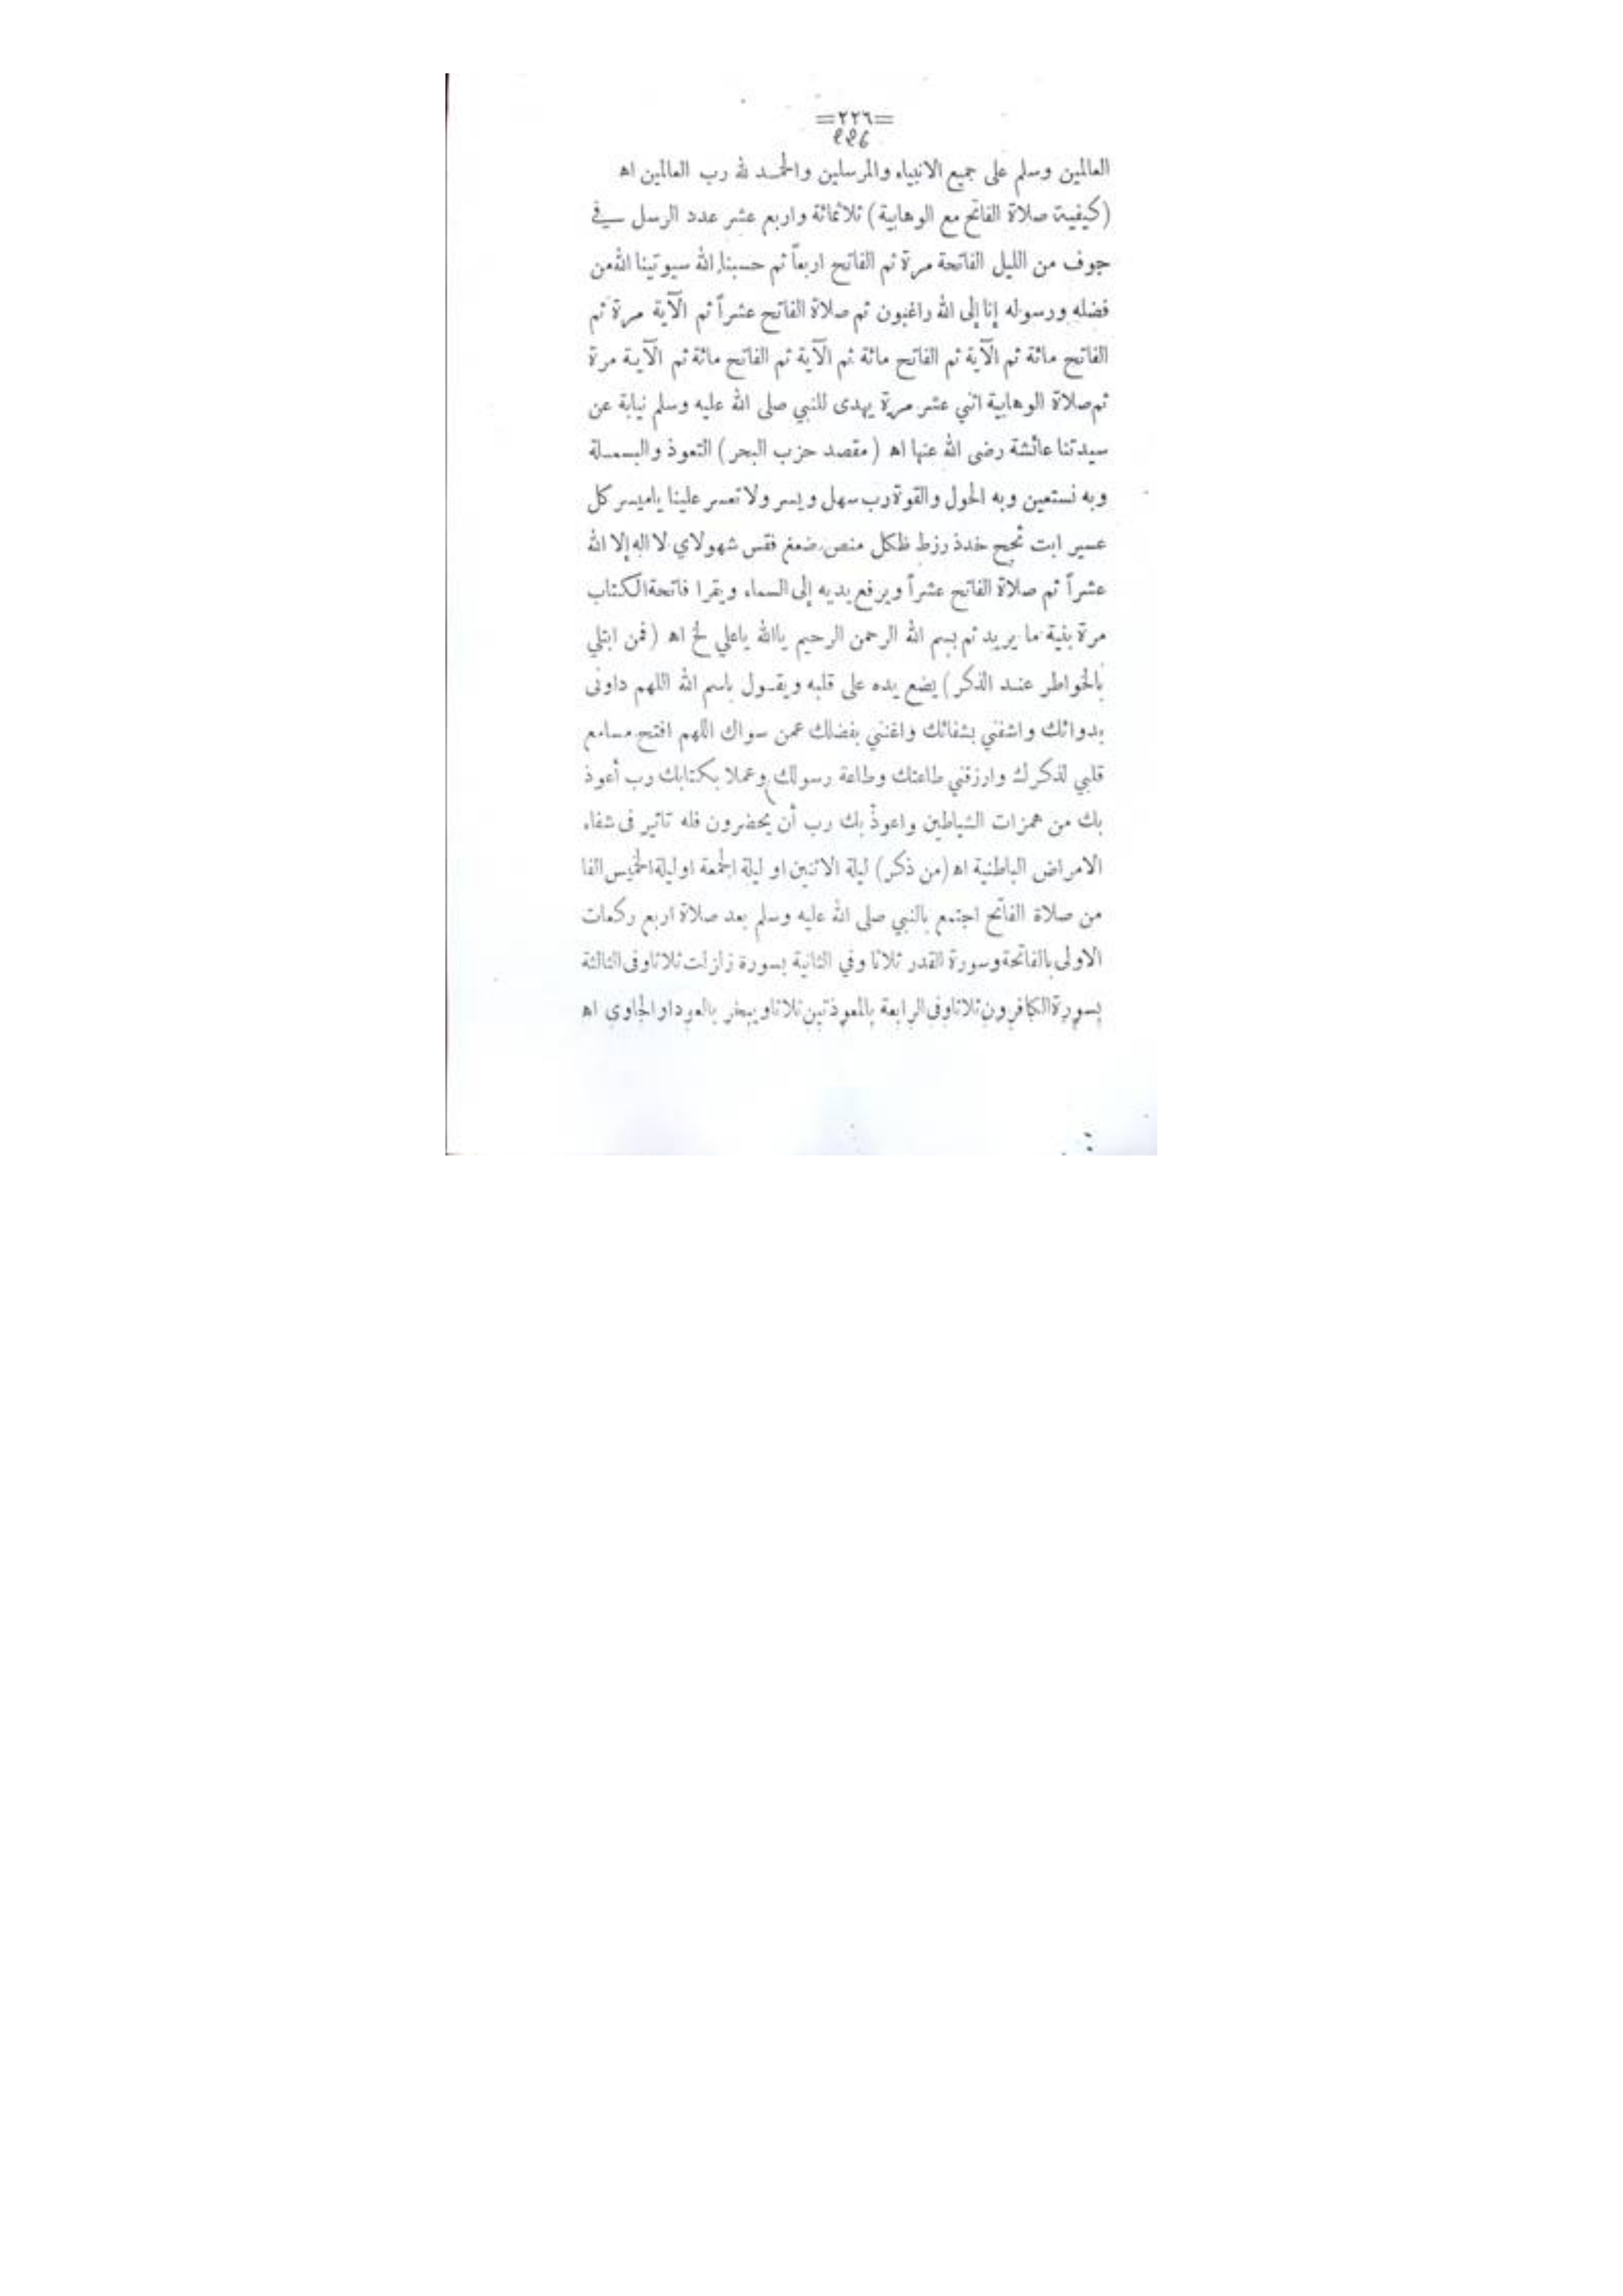 =٢٢٦=
226
العالمين وسلم على جميع الانبياء والمرسلين والحمد لله رب العالمين اه
(كيفية صلاة الفاتح مع الوهابية) ثلاثمائة واربع عشر عدد الرسل في
جوف من الليل الفاتحة مرة ثم الفاتح اربعاً ثم حسبنا الله سيوتينا الله من
فضله ورسوله إنا إلى الله راغبون ثم صلاة الفاتح عشراً ثم الآية مرة ثم
الفاتح مائة ثم الآية ثم الفاتح مائة ثم الآية ثم الفاتح مائة ثم الآية مرة
ثم صلاة الوهابية اثني عشر مرة يهدى للنبي صلى الله عليه وسلم نيابة عن
سيدتنا عائشة رضى الله عنها اه (مقصد حزب البحر) التعوذ والبسملة
وبه نستعين وبه الحول والقوة رب سهل ويسر ولا تعسر علينا ياميسر كل
عسير ابت ثجح خدذ رزط ظكل منص ضعغ فقس شهولاي لا اله إلا الله
عشراً ثم صلاة الفاتح عشراً ويرفع يديه إلى السماء ويقرا فاتحة الكتاب
مرة بنية ما يريد ثم بسم الله الرحمن الرحيم ياالله ياعلي لخ اه (فمن ابتلي
بالخواطر عند الذكر) يضع يده على قلبه ويقول باسم الله اللهم داونى
بدوائك واشفني بشفائك واغنني بفضلك عمن سواك اللهم افتح مسامع
قلبي لذكرك وارزقني طاعتك وطاعة رسولك وعملا بكتابك رب أعوذ
بك من همزات الشياطين واعوذ بك رب أن يحضرون فله تاثير فى شفاء
الامراض الباطنية اه (من ذكر) ليلة الاثنين او ليلة الجمعة او ليلة الخميس الفا
من صلاة الفاتح اجتمع بالنبي صلى الله عليه وسلم بعد صلاة اربع ركعات
الاولى بالفاتحة وسورة القدر ثلاثا وفي الثانية بسورة زلزلت ثلاثا وفى الثالثة
بسورة الكافرون ثلاثا وفى الرابعة بالمعوذتين ثلاثا ويبخر بالعود او الجاوي اه